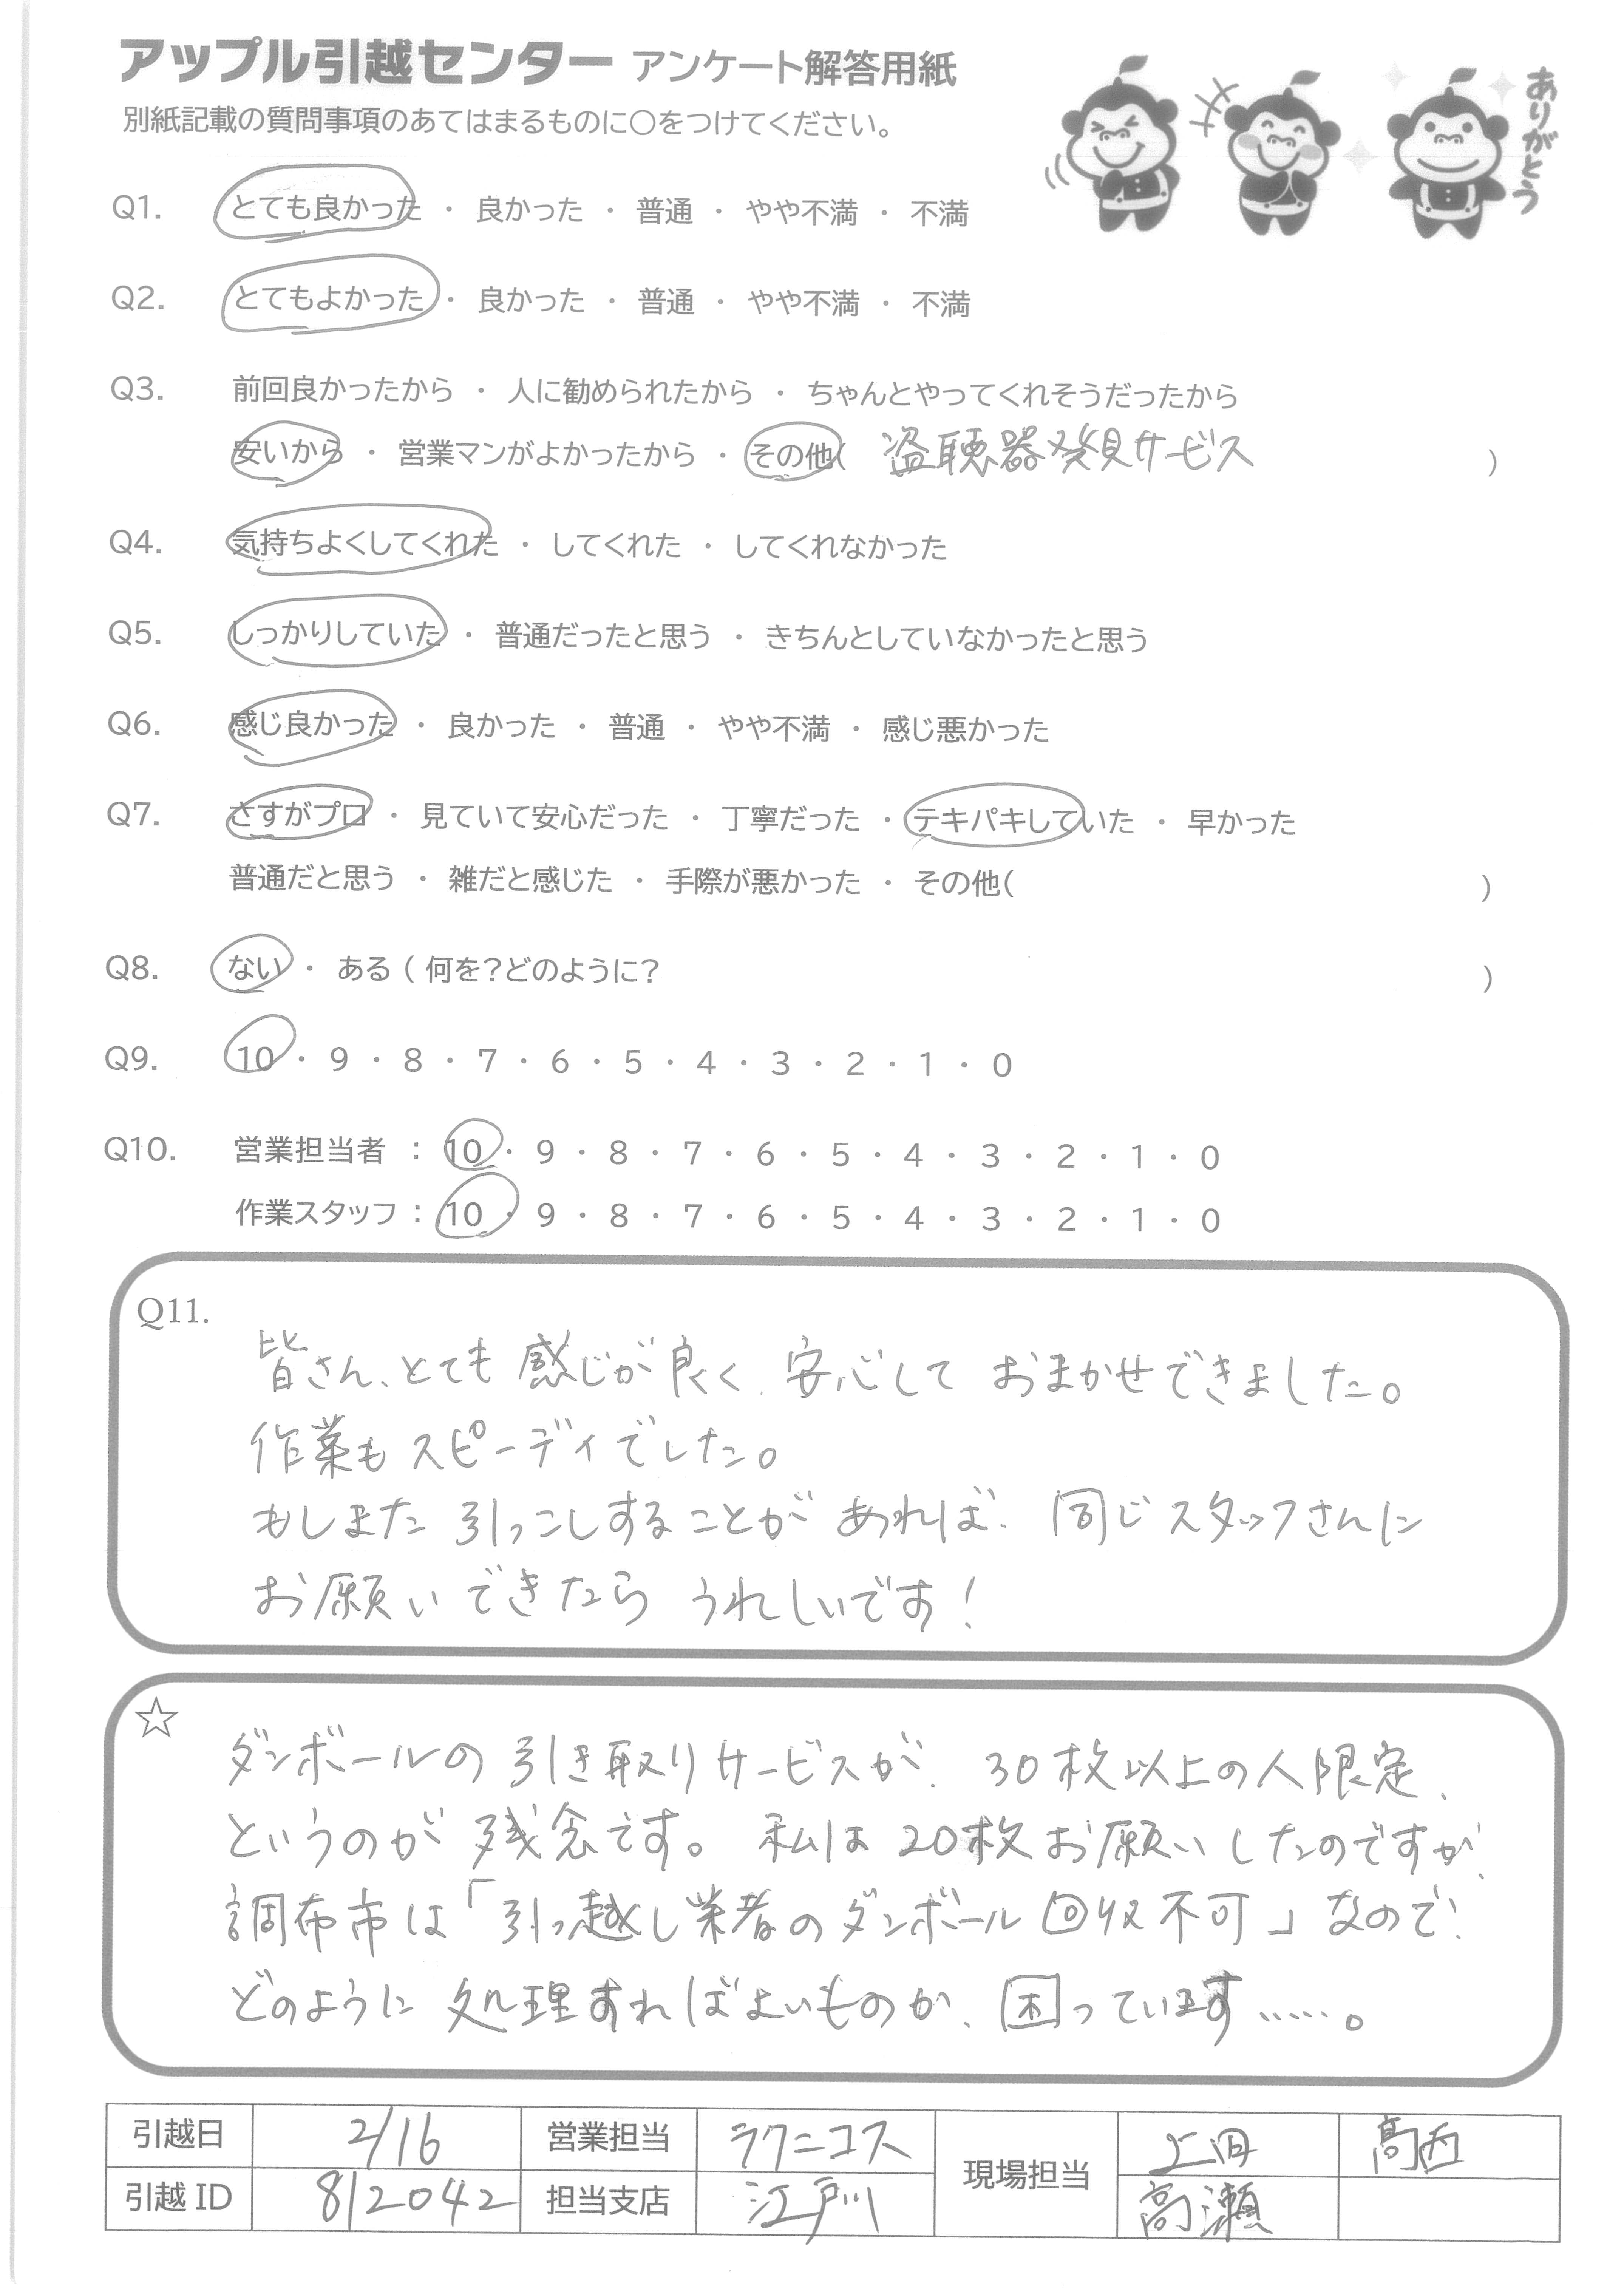 アップル引越センター アンケート解答用紙
別紙記載の質問事項のあてはまるものに○をつけてください。
ありがとう
Q1. とても良かった ・ 良かった ・ 普通 ・ やや不満 ・ 不満
Q2. とてもよかった ・ 良かった ・ 普通 ・ やや不満 ・ 不満
Q3. 前回良かったから ・ 人に勧められたから ・ ちゃんとやってくれそうだったから
安いから ・ 営業マンがよかったから ・ その他( 盗聴器発見サービス )
Q4. 気持ちよくしてくれた ・ してくれた ・ してくれなかった
Q5. しっかりしていた ・ 普通だったと思う ・ きちんとしていなかったと思う
Q6. 感じ良かった ・ 良かった ・ 普通 ・ やや不満 ・ 感じ悪かった
Q7. さすがプロ ・ 見ていて安心だった ・ 丁寧だった ・ テキパキしていた ・ 早かった
普通だと思う ・ 雑だと感じた ・ 手際が悪かった ・ その他( )
Q8. ない ・ ある ( 何を?どのように? )
Q9. 10 ・ 9 ・ 8 ・ 7 ・ 6 ・ 5 ・ 4 ・ 3 ・ 2 ・ 1 ・ 0
Q10. 営業担当者 : 10 ・ 9 ・ 8 ・ 7 ・ 6 ・ 5 ・ 4 ・ 3 ・ 2 ・ 1 ・ 0
作業スタッフ : 10 ・ 9 ・ 8 ・ 7 ・ 6 ・ 5 ・ 4 ・ 3 ・ 2 ・ 1 ・ 0
Q11.
皆さん、とても感じが良く、安心しておまかせできました。
作業もスピーディでした。
もしまた引っこしすることがあれば、同じスタッフさんに
お願いできたらうれしいです!
☆
ダンボールの引き取りサービスが、30枚以上の人限定、
というのが残念です。私は20枚お願いしたのですが、
調布市は「引っ越し業者のダンボール回収不可」なので、
どのように処理すればよいものか、困っています……。
引越日 2/16 営業担当 ラクニコス 現場担当 上田 高西
引越 ID 812042 担当支店 江戸川 高瀬